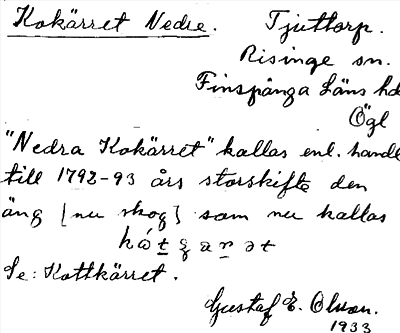 Kokärret Nedre. Tjuttorp.
Risinge sn.
Finspånga Läns hd
Ögl
"Nedra Kokärret" kallas enl. handl
till 1792-93 års storskifte den
äng [nu skog] som nu kallas
Se: Kottkärret.
Gustaf E. Olson.
1933